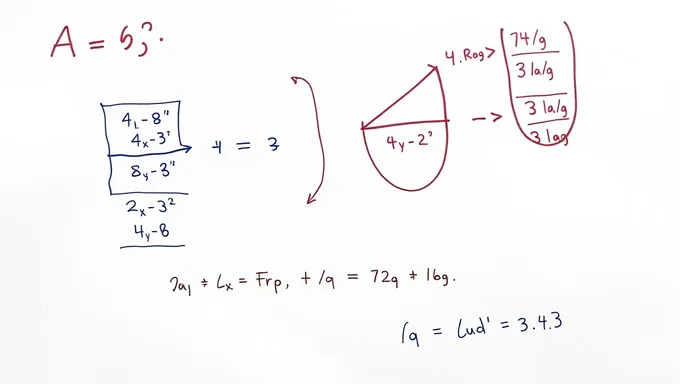 A = 6,?.
4L-8"
4x-3'
8y-3"
2x-3²
4y-8
+ = 3
4y-2'
4.Rog>
74/g
3 la/g
3 la/g
3 lag
Frp, + /q = 72q + 16g.
= Lud' = 3.4.3